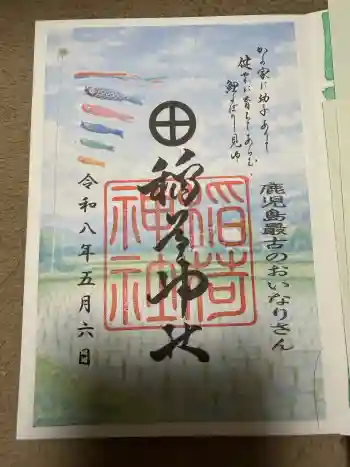 かの家に幼子ありて
健やかに育ちてあらむ
鯉のぼり見ゆ
鹿児島最古のおいなりさん
稲荷神社
稲荷
神社
令和八年五月六日